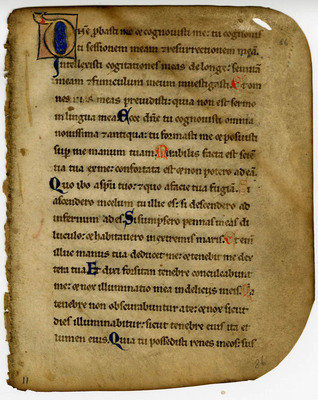 Dñe pbasti me ⁊ cognouisti me: tu cognouisti
ti sessionem meam ⁊ resurrectionem meã.
Intellexisti cogitationes meas de longe: semitã
meam ⁊ funiculum meum inuestigasti. Et om
nes uias meas preuidisti: quia non est sermo
in lingua mea. Ecce dñe tu cognouisti omnia
nouissima ⁊ antiqua: tu formasti me ⁊ posuisti
sup me manum tuam. Mirabilis facta est scien
tia tua ex me: confortata est ⁊ non potero ad eã.
Quo ibo a spũ tuo: ⁊ quo a facie tua fugiã. Si
ascendero in celum tu illic es: si descendero ad
infernum ades. Si sumpsero pennas meas di
luculo: ⁊ habitauero in extremis maris. Et eni
illuc manus tua deducet me: ⁊ tenebit me dex
tera tua. Et dixi forsitan tenebre conculcabunt
me: ⁊ nox illuminatio mea in deliciis meis. Quia
tenebre non obscurabuntur a te: ⁊ nox sicut
dies illuminabitur: sicut tenebre eius ita ⁊
lumen eius. Quia tu possedisti renes meos: sus
11